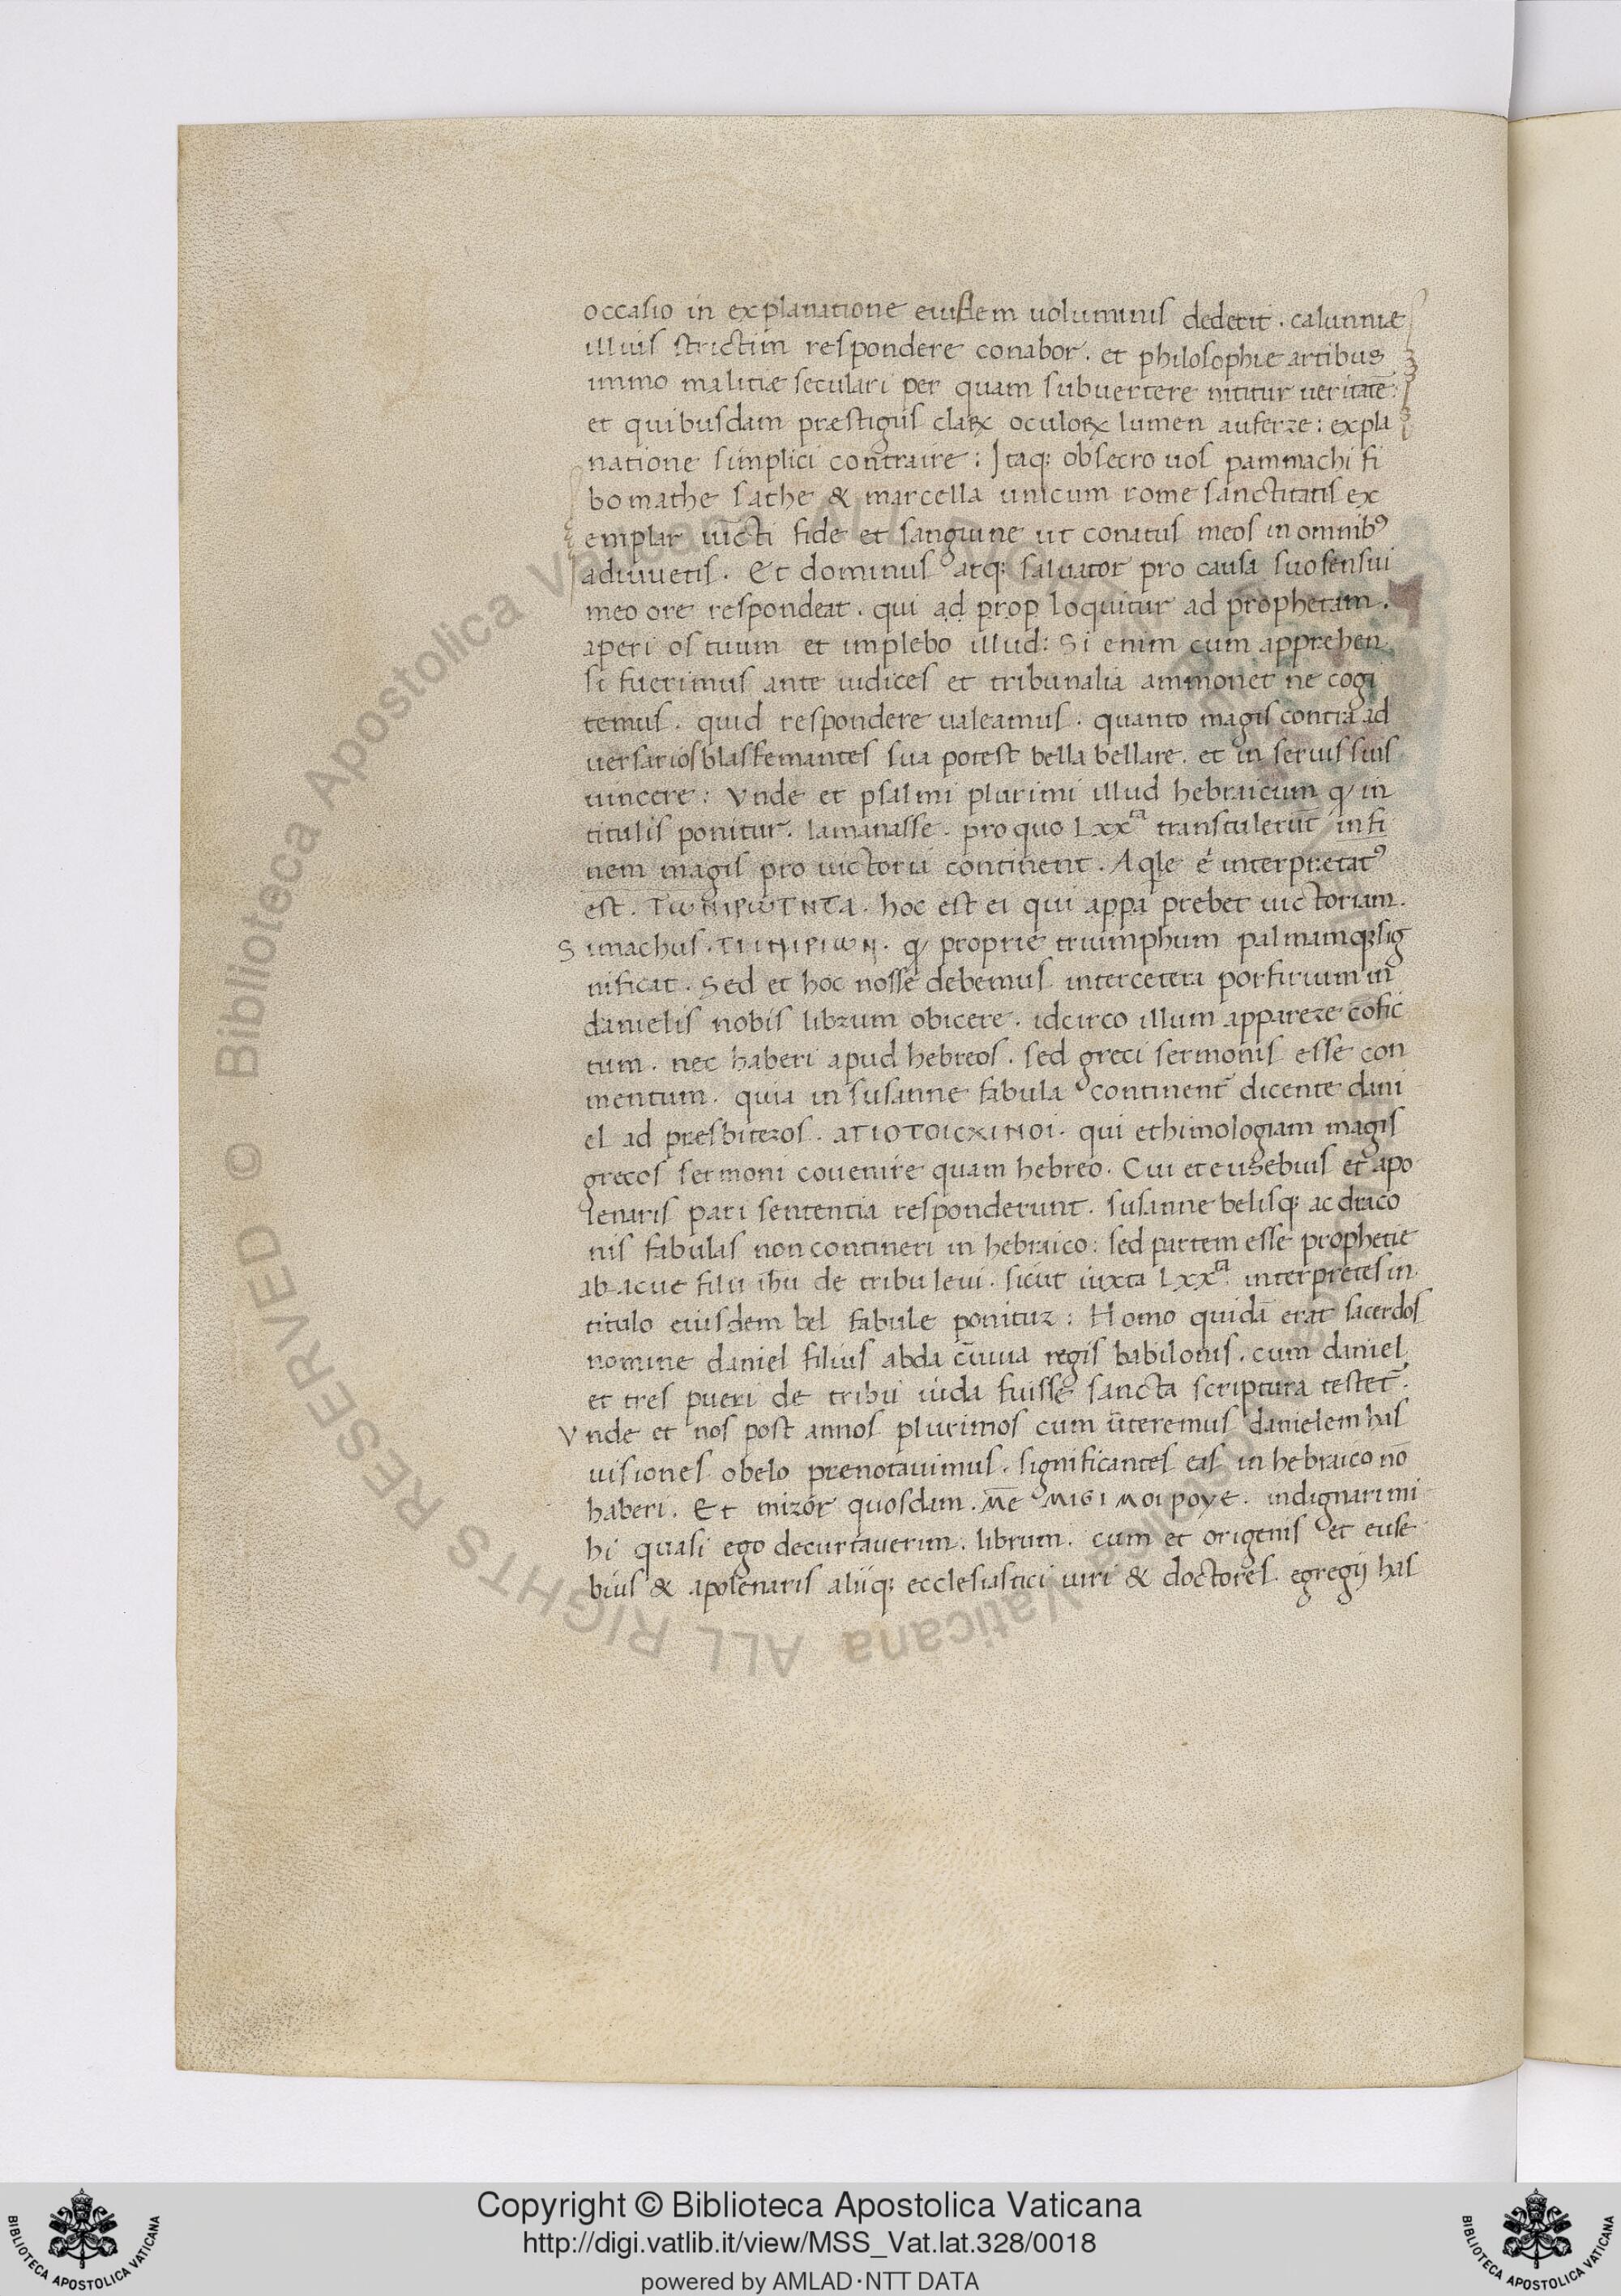 occasio in explanatione eiusdem uoluminis dederit . calunniæ
illius strictim respondere conabor . et philosophie artibus
immo malitiæ seculari per quam subuertere nititur ueritatē :
et quibusdam præstigiis claꝝ oculoꝝ lumen auferre : expla
natione simplici contraire : Itaq; obsecro uos pammachi fi
bo mathe sathe & marcella unicum rome sanctitatis ex
emplar iūcti fide et sanguine ut conatus meos in omnibꝰ
adiuuetis . Et dominus atq; saluator pro causa suo sensui
meo ore respondeat . qui ad prop loquitur ad prophetam .
aperi os tuum et implebo illud : Si enim cum apprehen
si fuerimus ante iudices et tribunalia ammonet ne cogi
temus . quid respondere ualeamus . quanto magis contra ad
uersarios blasfemantes sua potest bella bellare . et in seruis suis
uincere : Vnde et psalmi plurimi illud hebraicum qͥ in
titulis ponitur . lamanasse . pro quo Lxxᵗᵃ transtulerūt in fi
nem magis pro uictoria continent . Aqle é interpretatꝰ
est . ΤωΝΙΡωΤΝΤΑ . hoc est ei qui appa prebet uictoriam .
Simachus . ΤΙΙΝΙΡΙωΝ . qͥ proprie triumphum palmamq; sig
nificat . Sed et hoc nosse debemus inter cetera porfirium in
danielis nobis librum obicere . idcirco illum apparere cōfic
tum . nec haberi apud hebreos . sed greci sermonis esse con
mentum . quia in susanne fabula continent̄ dicente dani
el ad presbiteros . ΑΤΙΟΤΟΙCΧΙΝΟΙ . qui ethimologiam magis
grecos sermoni couenire quam hebreo . Cui et eusebius et apo
lenaris pari sententia responderunt . susanne belisq; ac draco
nis fabulas non contineri in hebraico : sed partem esse prophetie
abacuc filii ihu de tribu leui . sicut iuxta Lxxᵗᵃ interpretes in
titulo eiusdem bel fabule ponitur : Homo quidā erat sacerdos
nomine daniel filius abda cūuiua regis babilonis . cum daniel
et tres pueri de tribu iuda fuisse sancta scriptura testet̄ .
Vnde et nos post annos plurimos cum ūteremus danielem has
uisiones obelo prenotauimus . significantes eas in hebraico nō
haberi . Et miror quosdam . ΜΕ ΜΙGΙ ΜΟΙΡΟΥΕ . indignari mi
hi quasi ego decurtauerim . librum . cum et origenis et euse
bius & apolenaris aliiq; ecclesiastici uiri & doctores egregij has
Copyright © Biblioteca Apostolica Vaticana
http://digi.vatlib.it/view/MSS_Vat.lat.328/0018
powered by AMLAD·NTT DATA